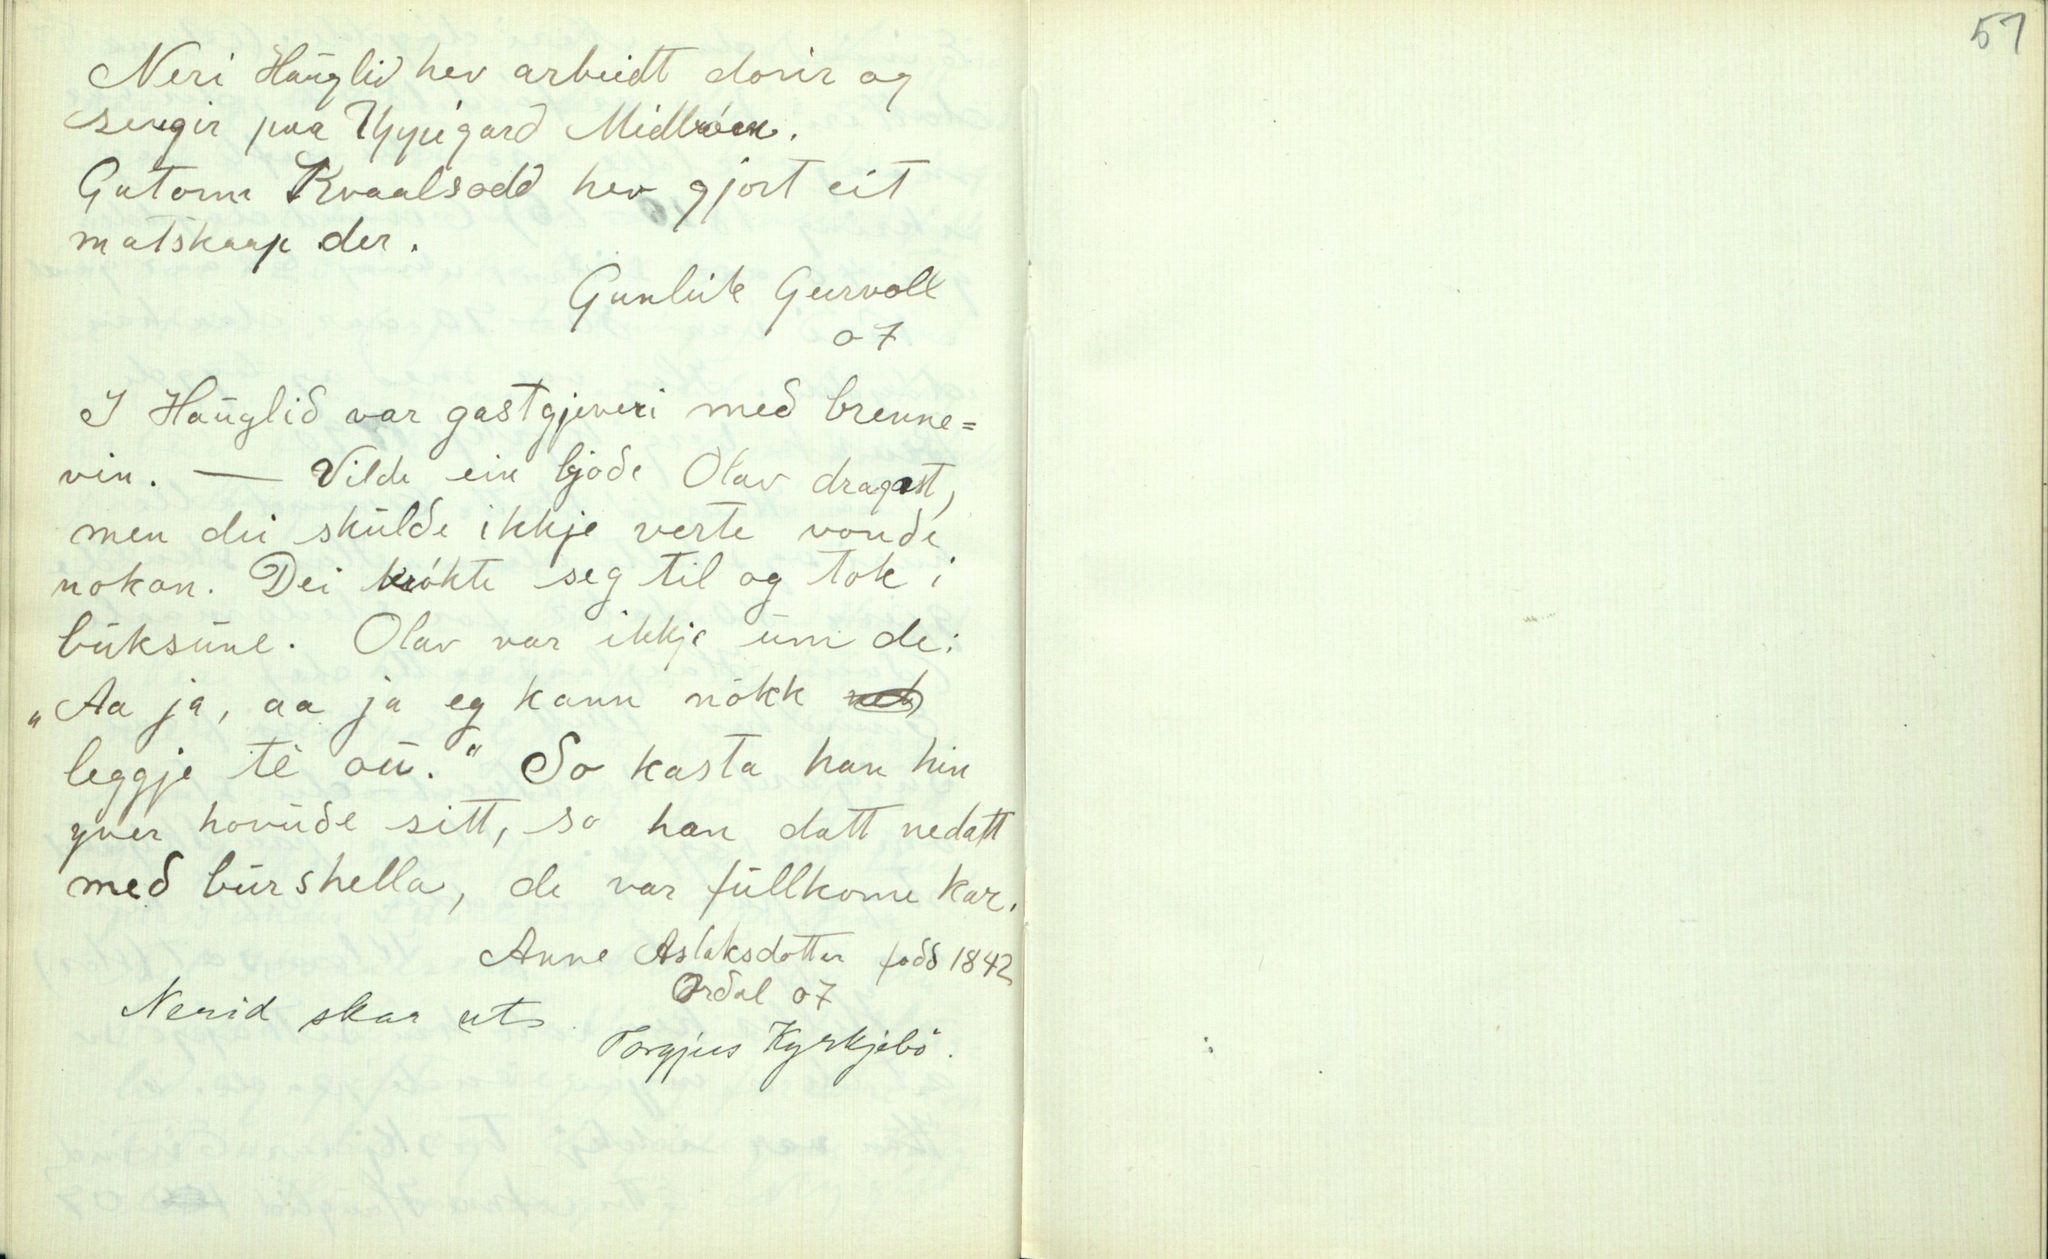 57
Neri Haüglid hev arbeidt dorir og
sengir paa Uppigard Midbøen.
Gutorm Kvaalsodd hev gjort eit
matskaap der.
Gunleik Geirvoll
07
I Haüglið var gastgjeveri með brenne=
vin. — Vilde ein bjoðe Olav dragast,
men dei skülde ikkje verte vonde
nokon. Dei krókte seg til og tok i
büksüne. Olav var ikkje üm de:
"Aa ja, aa ja eg kann nókk
leggje té oü." So kasta han hin
yver hovüðe sitt, so han datt nedatt
með bürshella, de var füllkome kar.
Anne Aslaksdotter fødd 1842
Ordal 07
Nerid skar ut
Torgjus Kyrkjebö.